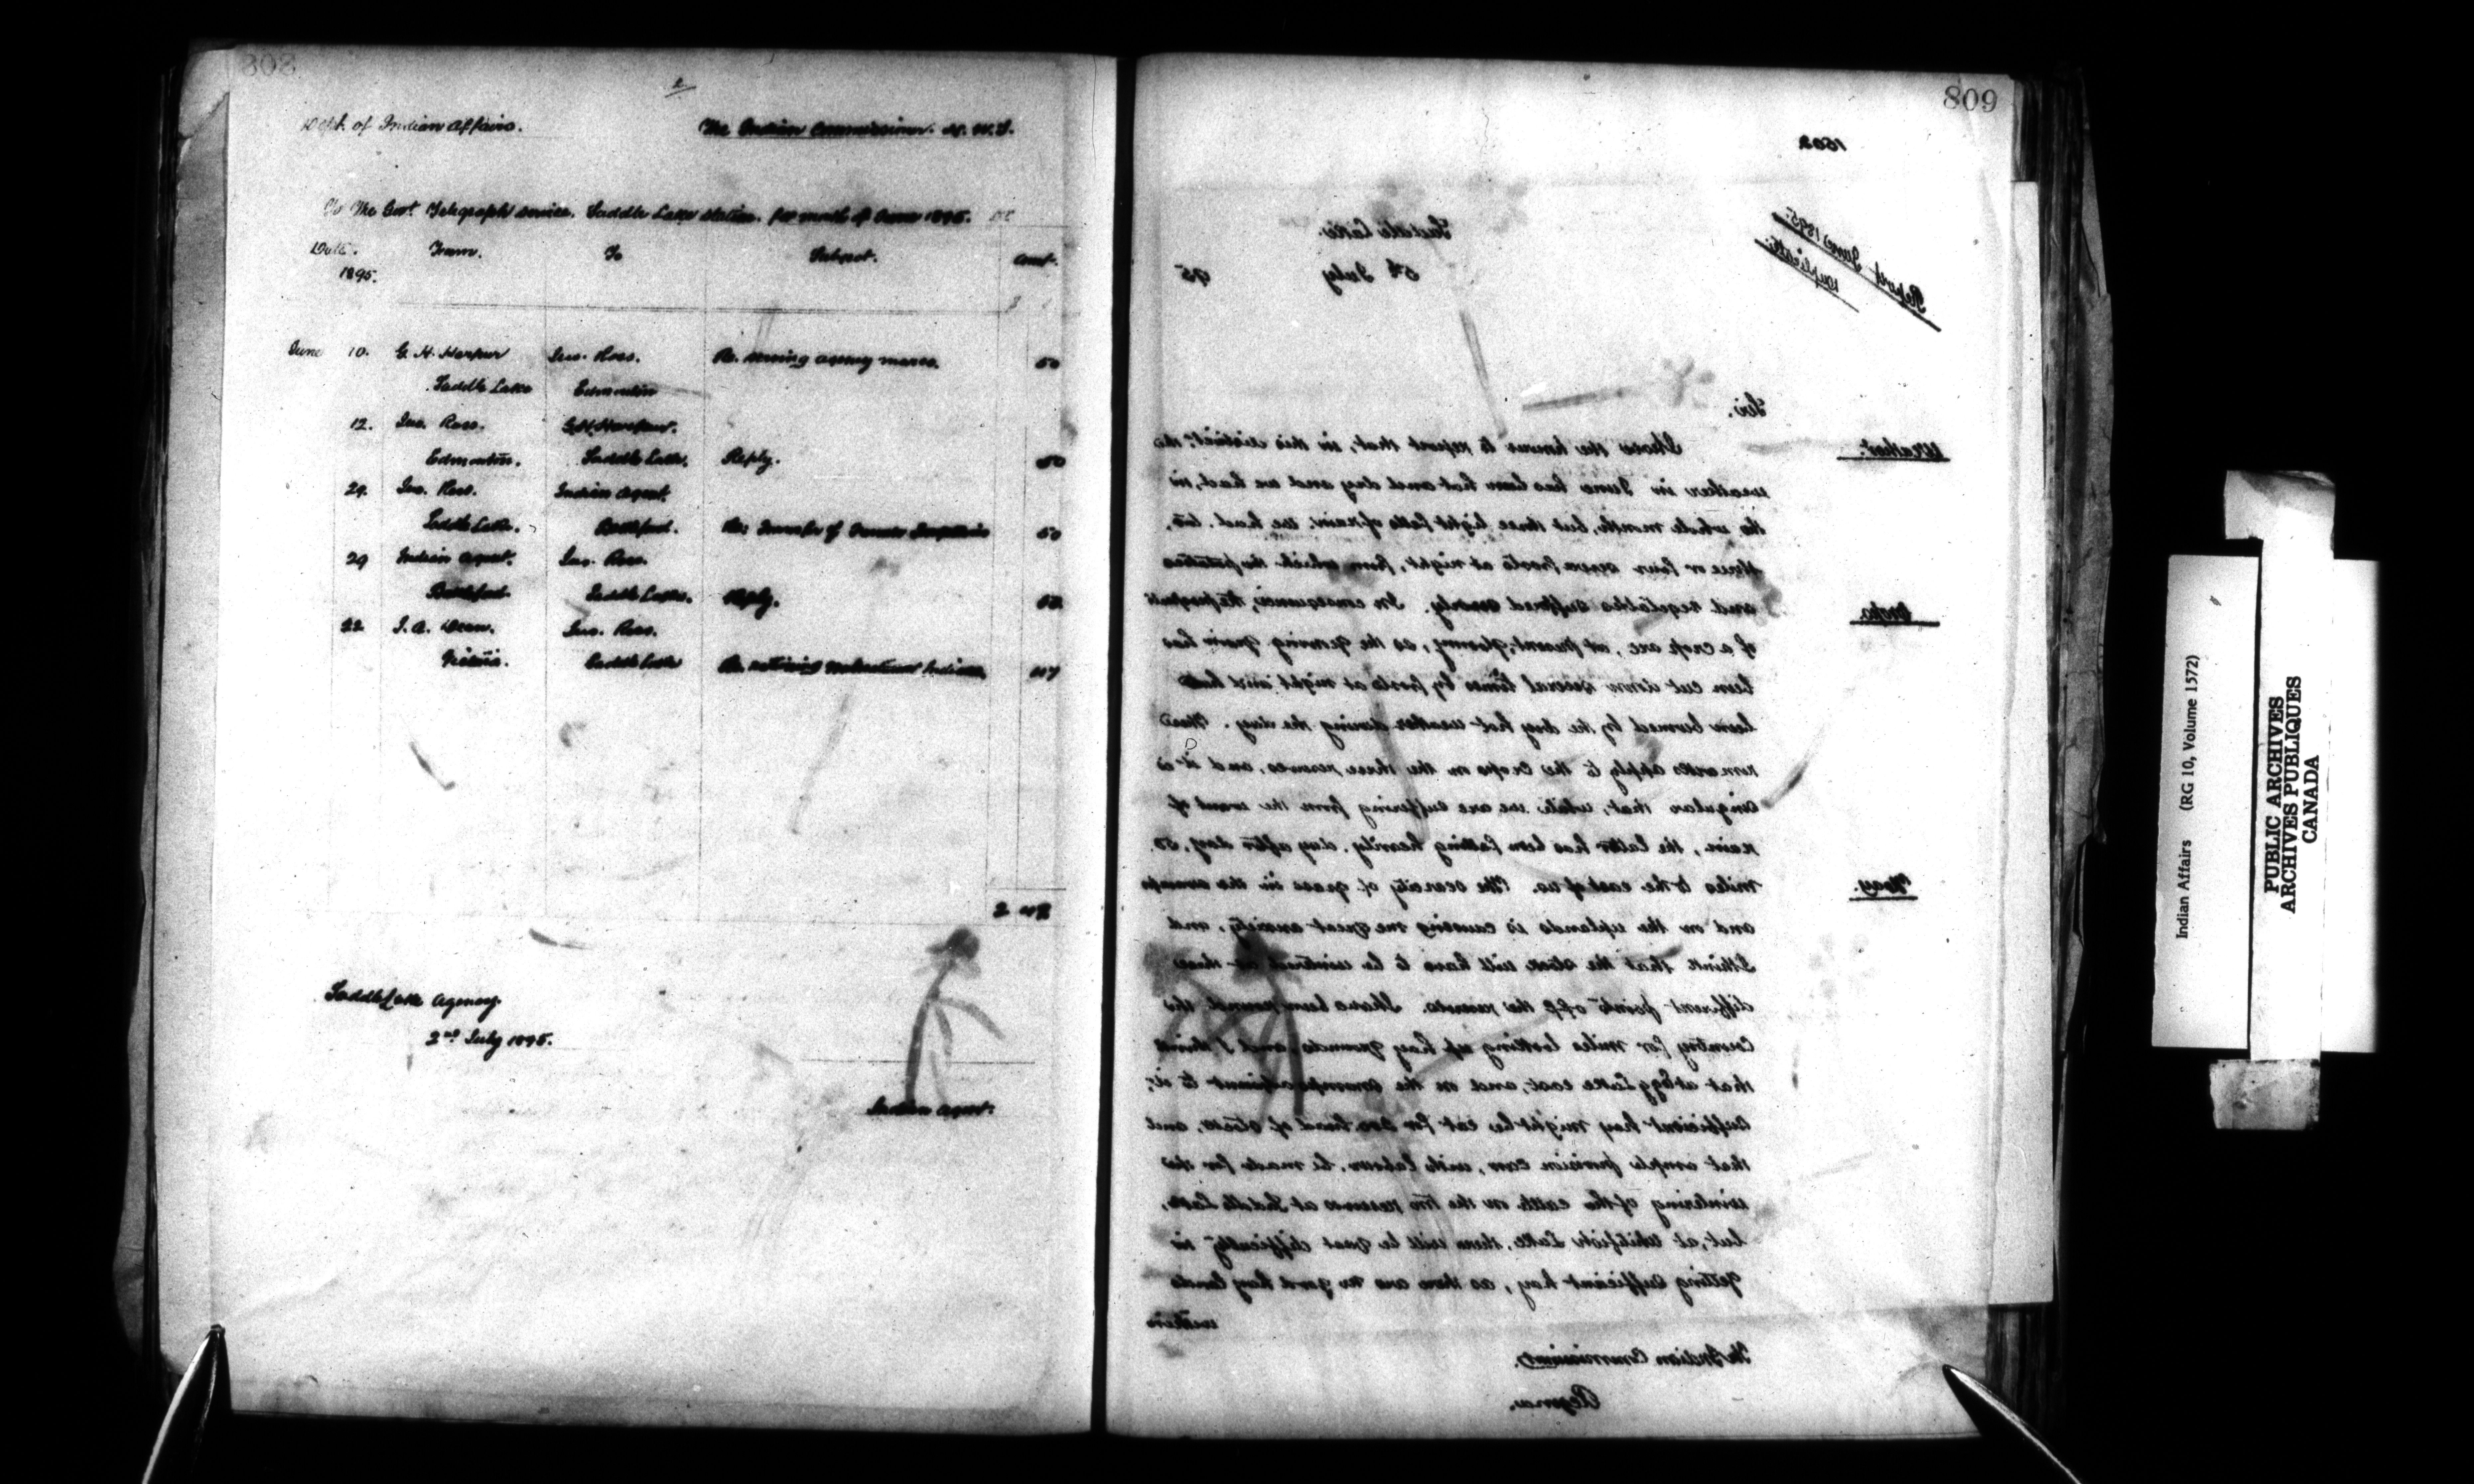 808
2
Dept. of Indian Affairs. The Indian Commissioner. N. W. T.
To The Govt Telegraph Service. Saddle Lake Station. for month of June 1895. Dr
Date. From. To Subject. Amt.
1895.
$
June 10. G. H. Harpur Jno. Ross. Re. agency mares. 50
Saddle Lake Edmonton
12. Jno. Ross. G. H. Harpur.
Edmonton. Saddle Lake. Reply. 50
29. Jno. Ross. Indian Agent.
Saddle Lake. Battleford. Re: Transfer of 50
29 Indian Agent. Jno. Ross.
Battleford. Saddle Lake. Reply. 50
22 J. A. Jno. Ross.
Saddle Lake Re. Indians
2
Saddle Lake Agency.
2nd July 1895.
Indian Agent.
809
1502
Report June 1895.
Duplicate.
Saddle Lake.
5th July 95
Sir.
Weather. I have the honour to report that, in this district, the
weather in June has been hot and dry and we had, in
the whole month, but three light falls of rain. we had, two,
three or four severe frosts at night, from which the potatoes
Crops. and vegetables suffered severely. In consequence, the prospects
of a crop are, at present, gloomy, as the growing grain has
been cut down several times by frosts at night and has
been burned by the dry hot weather during the day. These
remarks apply to the crops on the three reserves, and it is
singular that, while we are suffering from the want of
rain, the latter has been falling heavily, day after day, 50
Hay. miles to the east of us. The scarcity of grass in the swamps
and on the uplands is causing me great anxiety, and
I think that the stock will have to be wintered at three
different points off the reserves. I have been round the
Country for miles looking up hay grounds and I think
that at Egg Lake east, and on the swamps adjacent to it,
sufficient hay might be cut for 200 head of stock, and
that ample provision can, with labour, be made for the
wintering of the cattle on the two reserves at Saddle Lake,
but, at Whitefish Lake, there will be great difficulty in
getting sufficient hay, as there are no good hay lands
within
The Indian Commissioner.
Regina.
Indian Affairs (RG 10, Volume 1572)
PUBLIC ARCHIVES
ARCHIVES PUBLIQUES
CANADA